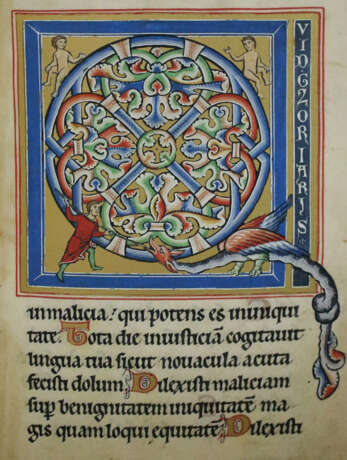 QVID GLORIARIS
inmalicia: qui potens es ininiqui
tate. Tota die iniusticiā cogitauit
lingua tua sicut nouacula acuta
fecisti dolum Dilexisti maliciam
sup̄ benignitatem iniquitatē ma
gis quam loqui equitatē Dilexisti